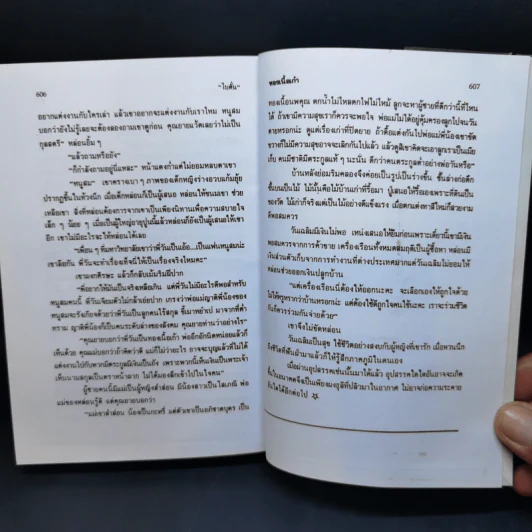 606
"ใบสั้น"
อยากแต่งงานกับใครเล่า แล้วเขาอยากจะแต่งงานกับเราไหม หนูสม
บอกว่ายังไม่รู้เลยจะต้องลองถามเขาดูก่อน คุณยายแว้ดเลยว่าไม่เป็น
กุลสตรี" หล่อนยิ้มๆ
"แล้วถามหรือยัง"
"ก็กำลังถามอยู่นี่แหละ" หน้าแดงก่ำแต่ไม่ยอมหลบตาเขา
"หนูสม" เขาครางเบาๆ ภาพของเด็กหญิงร่างอวบแก้มยุ้ย
ปรากฏขึ้นในห้วงนึก เมื่อเด็กหล่อนก็เป็นผู้เสนอ หล่อนให้ขนมเขา ช่วย
เหลือเขา สิ่งที่หล่อนต้องการจากเขาเป็นเพียงนิทานเพื่อความสบายใจ
เล็กๆ น้อยๆ เมื่อเป็นผู้ใหญ่อยู่บุ่นนี้แล้วหล่อนก็ยังเป็นผู้เสนอให้เขา
อีก เขาไม่มีอะไรจะให้หล่อนได้เลย
"เพื่อนๆ ที่มหาวิทยาลัยเขาว่าพี่วันเป็นอ้อ...เป็นแฟนหนูสมน่ะ
เขาลือกัน พี่วันจะทำเรื่องเท็จนี่ให้เป็นเรื่องจริงไหมคะ"
เขาผงกศีรษะ แล้วก็กลับเม้มริมฝีปาก
"พี่อยากให้มันเป็นจริงเหลือเกิน แต่พี่วันไม่มีอะไรดีพอสำหรับ
หนูสมคนนี้ พี่วันเจียมตัวไม่กล้าเอ่ยปาก เกรงว่าพ่อแม่ญาติพี่น้องของ
หนูสมจะรังเกียจด้วยพี่วันเป็นลูกคนไร้สกุล ซ้ำมาพยำเป มาจากที่ต่ำ
ทราม ญาติพี่น้องก็เป็นคนระดับล่างของสังคม คุณยายท่านว่าอย่างไร"
"คุณยายบอกว่าพี่วันเป็นทองเนื้อเก้า พ่ออีกอักนิดหน่อยแล้วก็
เห็นด้วย คุณแม่บอกว่าถ้าคิดว่าดี แม่ก็ไม่ว่าอะไร อาจจะบุญแล้วที่ไม่ได้
แต่งงานไปกับพวกมีตระกูลมีเงินเป็นถัง เพราะพวกนี้เห็นเงินเป็นพระเจ้า
เห็นนามสกุลเป็นตราหน้าลาก ไม่ได้มองลึกเข้าไปในใจคน"
ผู้ชายคนนี้มีแม่เป็นผู้หญิงสำส่อน มีน้องสาวเป็นโสเภณี พ่อ
แม่ของหล่อนรู้ดี แต่คุณยายบอกว่า
"แม่เขาสำส่อน น้องเป็นกะหรี่ แต่ตัวเขาเป็นอภิชาตบุตร เป็น
ทองเนื้อเก้า
607
ทองเนื้อนพคุณ ตกน้ำไม่ไหลตกไฟไม่ไหม้ ลูกจะหาผู้ชายที่ดีกว่านี้ที่ไหน
ได้ ถ้าเขามีความสุขเราก็ควรจะพอใจ พ่อแม่ไม่ได้อยู่คุ้มครองลูกไปจนวัน
ตายหรอกน่ะ ดูแต่เรื่องเก่าที่ปิดยาย ถ้าดื้อแต่งกันไปพ่อแม่พี่น้องเขาขัด
ขวางก็ไม่มีความสุขอาจจะเลิกกันไปแล้ว แล้วดูสิเขาคิดจะเอาลูกเราเป็นเมีย
เก็บ คนมีชาติมีตระกูลแท้ๆ นะนั่น ดีกว่าคนตระกูลต่ำอย่างพ่อวันหรือ"
บ้านหลังย่อมริมคลองจึงค่อยเป็นรูปเป็นร่างขึ้น ชั้นล่างก่อตึก
ชั้นบนเป็นไม้ ไม้นั้นคือไม้บ้านเก่าที่รื้อมา ปู่เสนอให้รื้อเองเพราะที่ดินเป็น
ของวัด ไม้เก่าก็จริงแต่เป็นไม้อย่างดีแข็งแรง เมื่อตกแต่งทาสีใหม่ก็สวยงาม
ดีพอสมควร
วันเฉลิมมีเงินไม่พอ เทน่งเสนอให้ยืมก่อนเพราะเดี๋ยวนี้เขามีเงิน
พอสมควรจากการค้าขาย เครื่องเรือนทั้งหมดสมฤดีเป็นผู้ซื้อหา หล่อนมี
เงินส่วนตัวเก็บจากการทำงานที่ต่างประเทศมากแต่วันเฉลิมไม่ยอมให้
หล่อนช่วยออกเงินปลูกบ้าน
"แต่เครื่องเรือนนี่ต้องให้ออกนะคะ เลือกเองให้ถูกใจด้วย
ไม่ใช่หรูหรากว่าบ้านหรอกน่ะ แต่ต้องใช้ดีถูกใจคนใช้นะคะ เราจะร่วมชีวิต
กันก็ควรร่วมกันจ่ายด้วย"
เขาจึงไม่ขัดหล่อน
วันเฉลิมเป็นสุข ใช้ชีวิตอย่างสงบกับผู้หญิงที่เขารัก เมื่อหวนนึก
ชีวิตที่ฟันฝ่ามาแล้วก็ให้รู้สึกภาคภูมิในตนเอง
เมื่อผ่านอุปสรรคเช่นนั้นมาได้แล้ว อุปสรรคใดใดอันอาจจะเกิด
ขึ้นในอนาคตจึงเป็นเพียงผงธุลีที่ปลิวมาในอากาศ ไม่อาจก่อความระคาย
เคืองใดได้อีกต่อไป